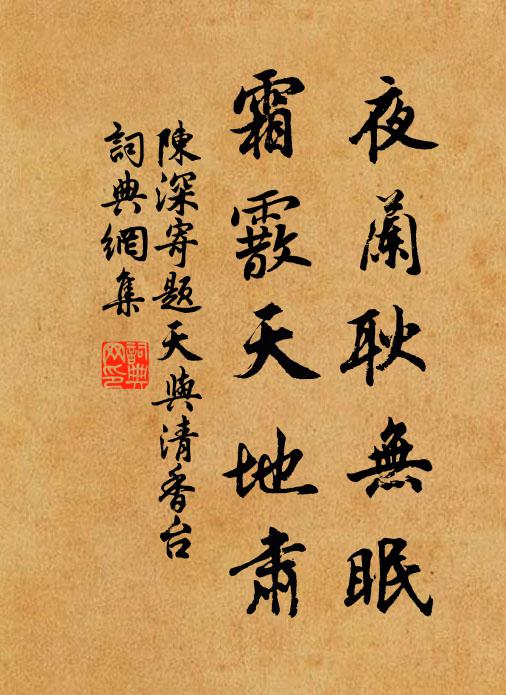 夜蘭耿無眠
霜霰天地肅
陳深寄題天與清香台
詞典網集
詞典網印